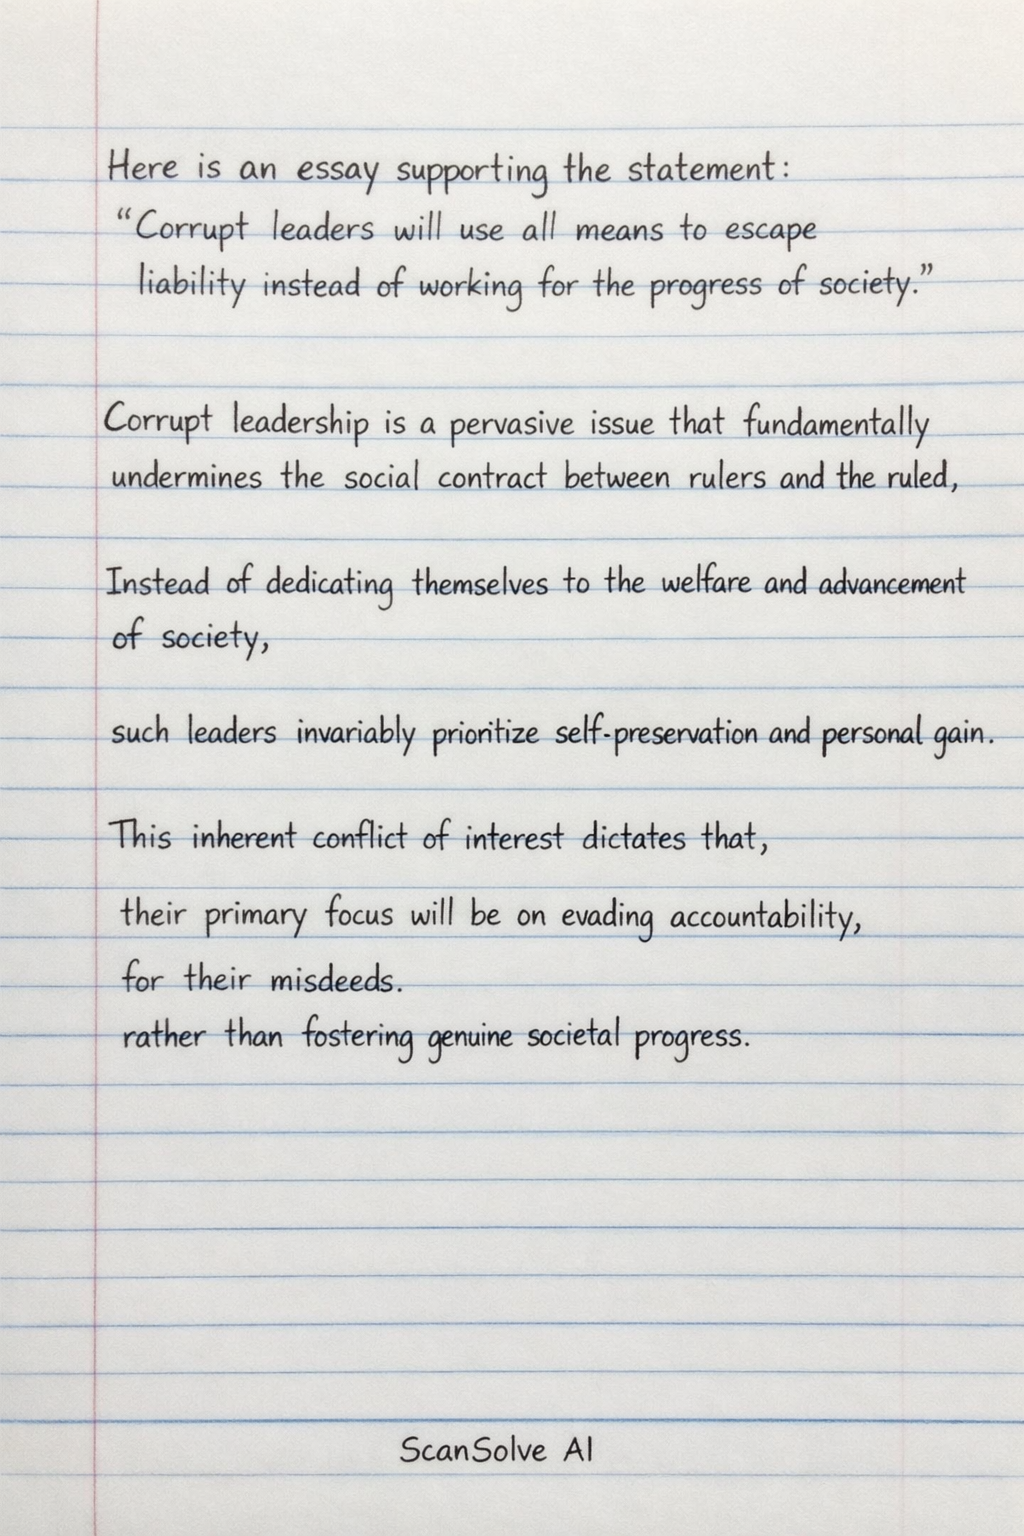 Here is an essay supporting the statement:
“Corrupt leaders will use all means to escape
liability instead of working for the progress of society.”
Corrupt leadership is a pervasive issue that fundamentally
undermines the social contract between rulers and the ruled,
Instead of dedicating themselves to the welfare and advancement
of society,
such leaders invariably prioritize self-preservation and personal gain.
This inherent conflict of interest dictates that,
their primary focus will be on evading accountability,
for their misdeeds.
rather than fostering genuine societal progress.
ScanSolve AI